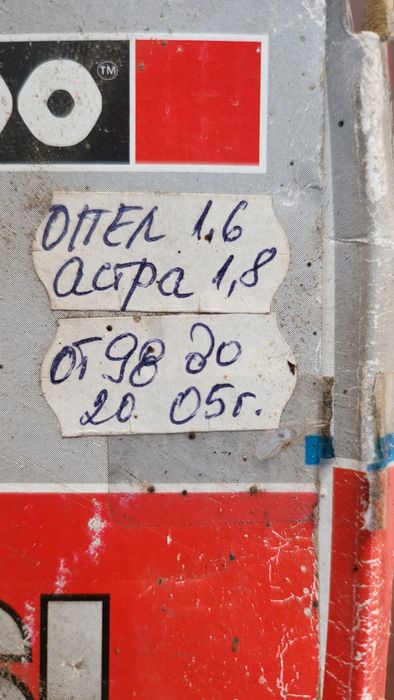 TM
ОПЕЛ 1,6
астра 1,8
от 98 до
20 05г.